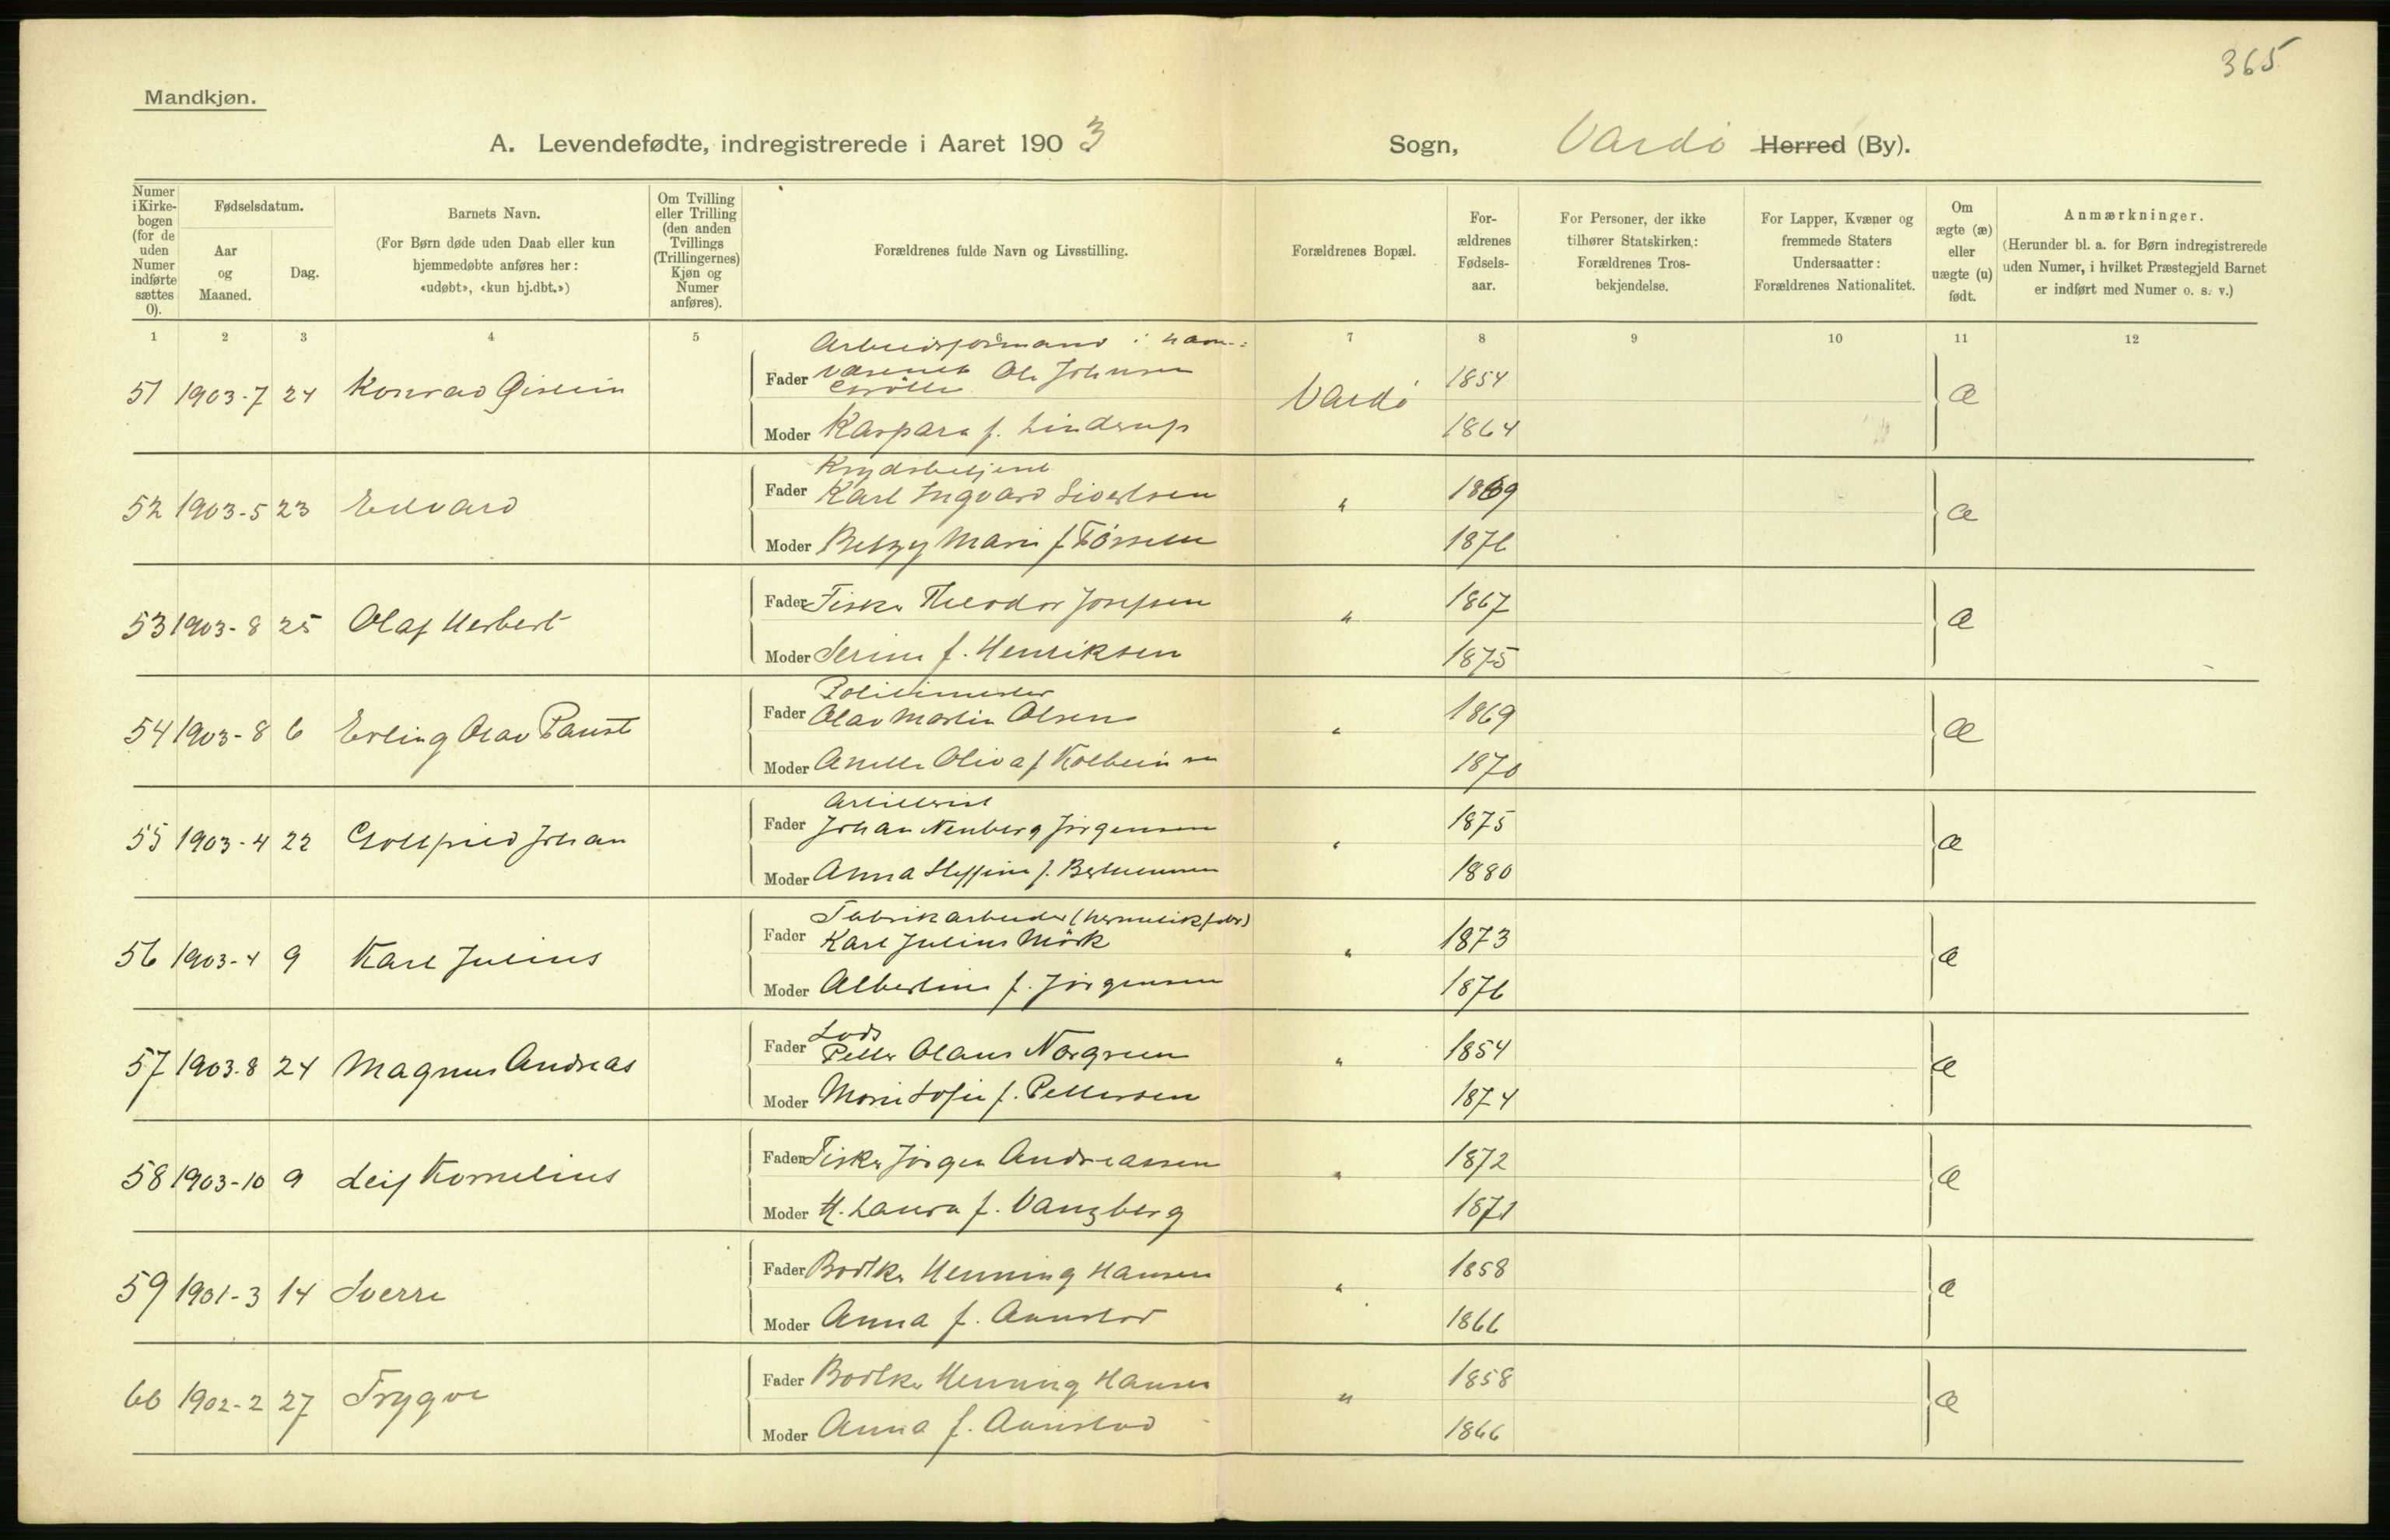 365
Mandkjøn.
A. Levendefødte, indregistrerede i Aaret 1903 Sogn, Vardö Herred (By).
Numer i Kirke-bogen (for de uden Numer indførte sættes 0).
Fødselsdatum.
Aar og Maaned.
Dag.
Barnets Navn.
(For Børn døde uden Daab eller kun hjemmedøbte anføres her: «udøbt», «kun hj.dbt.»)
Om Tvilling eller Trilling (den anden Tvillings (Trillingernes) Kjøn og Numer anføres).
Forældrenes fulde Navn og Livsstilling.
Forældrenes Bopæl.
For-ældrenes Fødsels-aar.
For Personer, der ikke tilhører Statskirken: Forældrenes Tros-bekjendelse.
For Lapper, Kvæner og fremmede Staters Undersaatter: Forældrenes Nationalitet.
Om ægte (æ) eller uægte (u) født.
Anmærkninger.
(Herunder bl. a. for Børn indregistrerede uden Numer, i hvilket Præstegjeld Barnet er indført med Numer o. s. v.)
1 2 3 4 5 6 7 8 9 10 11 12
Arbeidsformand i Havne-
51 1903-7 24 Konrad Øistein Fader væsenet Ole Johnsen Vardö 1854 æ
Moder Kaspara f. Lindrup 1864
Krydsbetjent
52 1903-5 23 Edvard Fader Karl Ingvard Sivertsen " 1869 æ
Moder Betzy Marie f. 1876
53 1903-8 25 Olaf Herbert Fader Fisker Theodor Josefsen " 1867 æ
Moder Serine f. Henriksen 1875
Politimester
54 1903-8 6 Erling Olav Paust Fader Olav Martin Olsen " 1869 æ
Moder Anette Oliva f. Kolbeinsen 1870
Artillerist
55 1903-4 22 Gottfried Johan Fader Johan Nenberg Jörgensen " 1875 æ
Moder Anna Steffine f. 1880
Fabrikarbeider (hermetikfabr)
56 1903-4 9 Karl Julius Fader Karl Julius Mörk " 1873 æ
Moder Albertine f. Jörgensen 1876
Lods
57 1903-8 24 Magnus Andreas Fader Petter Olaus Norgreen " 1854 æ
Moder Marie Sofie f. Pettersen 1874
58 1903-10 9 Leif Kornelius Fader Fisker Jörgen Andreassen " 1872 æ
Moder H. Laura f. Vanzberg 1871
59 1901-3 14 Sverre Fader Bödker Henning Hansen " 1858 æ
Moder Anna f. Aunstad 1866
60 1902-2 27 Trygve Fader Bödker Henning Hansen " 1858 æ
Moder Anna f. Aunstad 1866